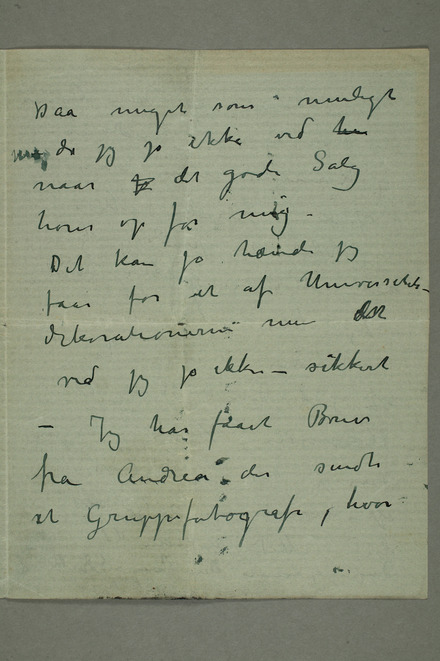 saa meget som muligt
da jeg jo ikke ved
naar det gode Salg
hører op for mig –
Det kan jo hænde jeg
faar for et af Universitets-
dekorationerne men det
ved jeg jo ikke – sikkert
– Jeg har faaet Brev
fra Andrea der sendte
et Gruppefotografi, hvor